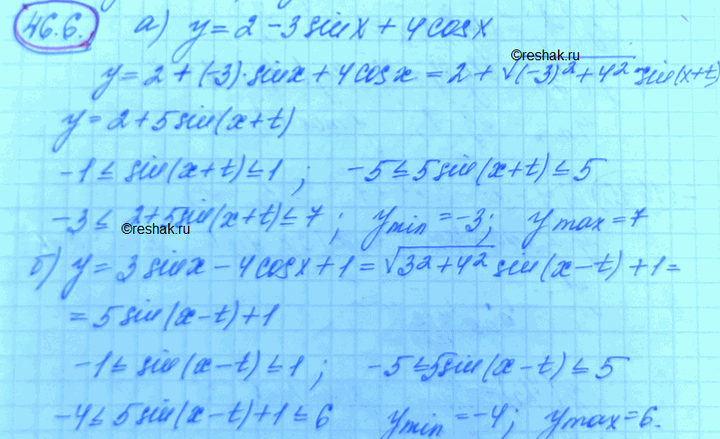 46.6. а) y = 2 - 3 sin x + 4 cos x
©reshak.ru
y = 2 + (-3)·sin x + 4 cos x = 2 + √((-3)² + 4²) · sin(x+t)
y = 2 + 5 sin(x+t)
-1 ≤ sin(x+t) ≤ 1 ; -5 ≤ 5 sin(x+t) ≤ 5
-3 ≤ 2 + 5 sin(x+t) ≤ 7 ; y min = -3; y max = 7
©reshak.ru
б) y = 3 sin x - 4 cos x + 1 = √(3² + 4²) sin(x-t) + 1 =
= 5 sin(x-t) + 1
-1 ≤ sin(x-t) ≤ 1 ; -5 ≤ 5 sin(x-t) ≤ 5
-4 ≤ 5 sin(x-t) + 1 ≤ 6 y min = -4; y max = 6.